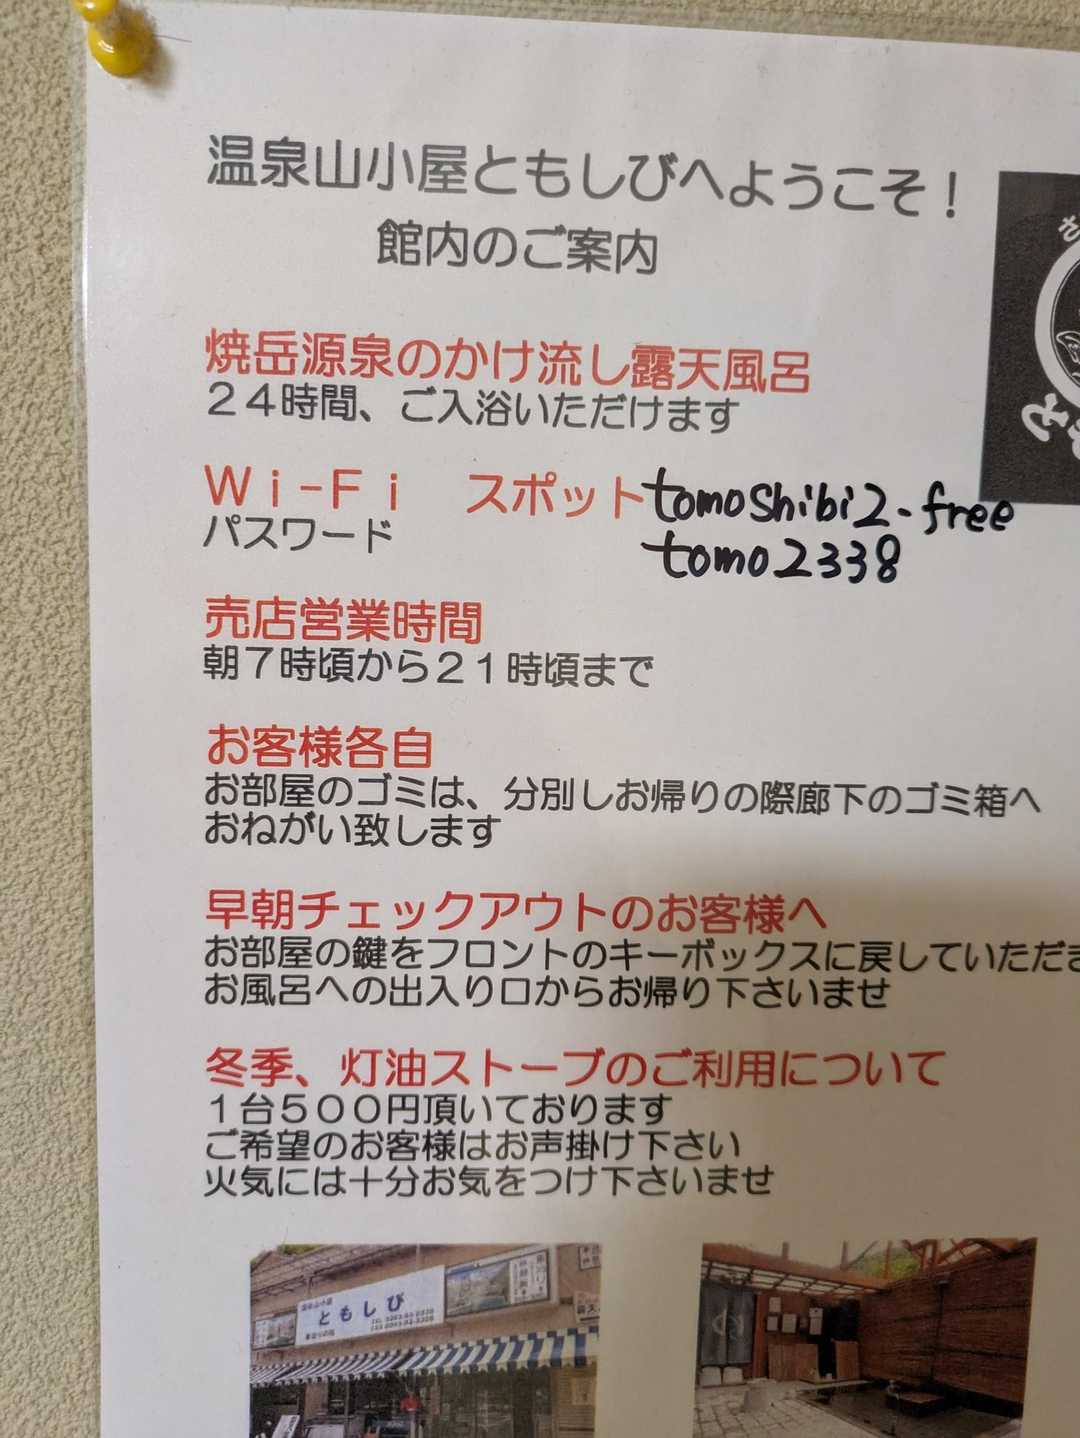 温泉山小屋ともしびへようこそ！
館内のご案内
焼岳源泉のかけ流し露天風呂
２４時間、ご入浴いただけます
Ｗｉ-Ｆｉ　スポット tomoshibi2-free
パスワード tomo2338
売店営業時間
朝７時頃から２１時頃まで
お客様各自
お部屋のゴミは、分別しお帰りの際廊下のゴミ箱へ
おねがい致します
早朝チェックアウトのお客様へ
お部屋の鍵をフロントのキーボックスに戻していただき
お風呂への出入り口からお帰り下さいませ
冬季、灯油ストーブのご利用について
１台５００円頂いております
ご希望のお客様はお声掛け下さい
火気には十分お気をつけ下さいませ
温泉山小屋
ともしび